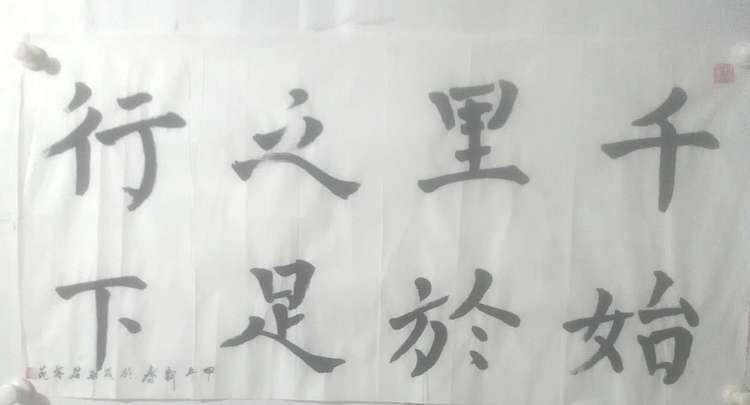 千里之行
始於足下
甲午新春於